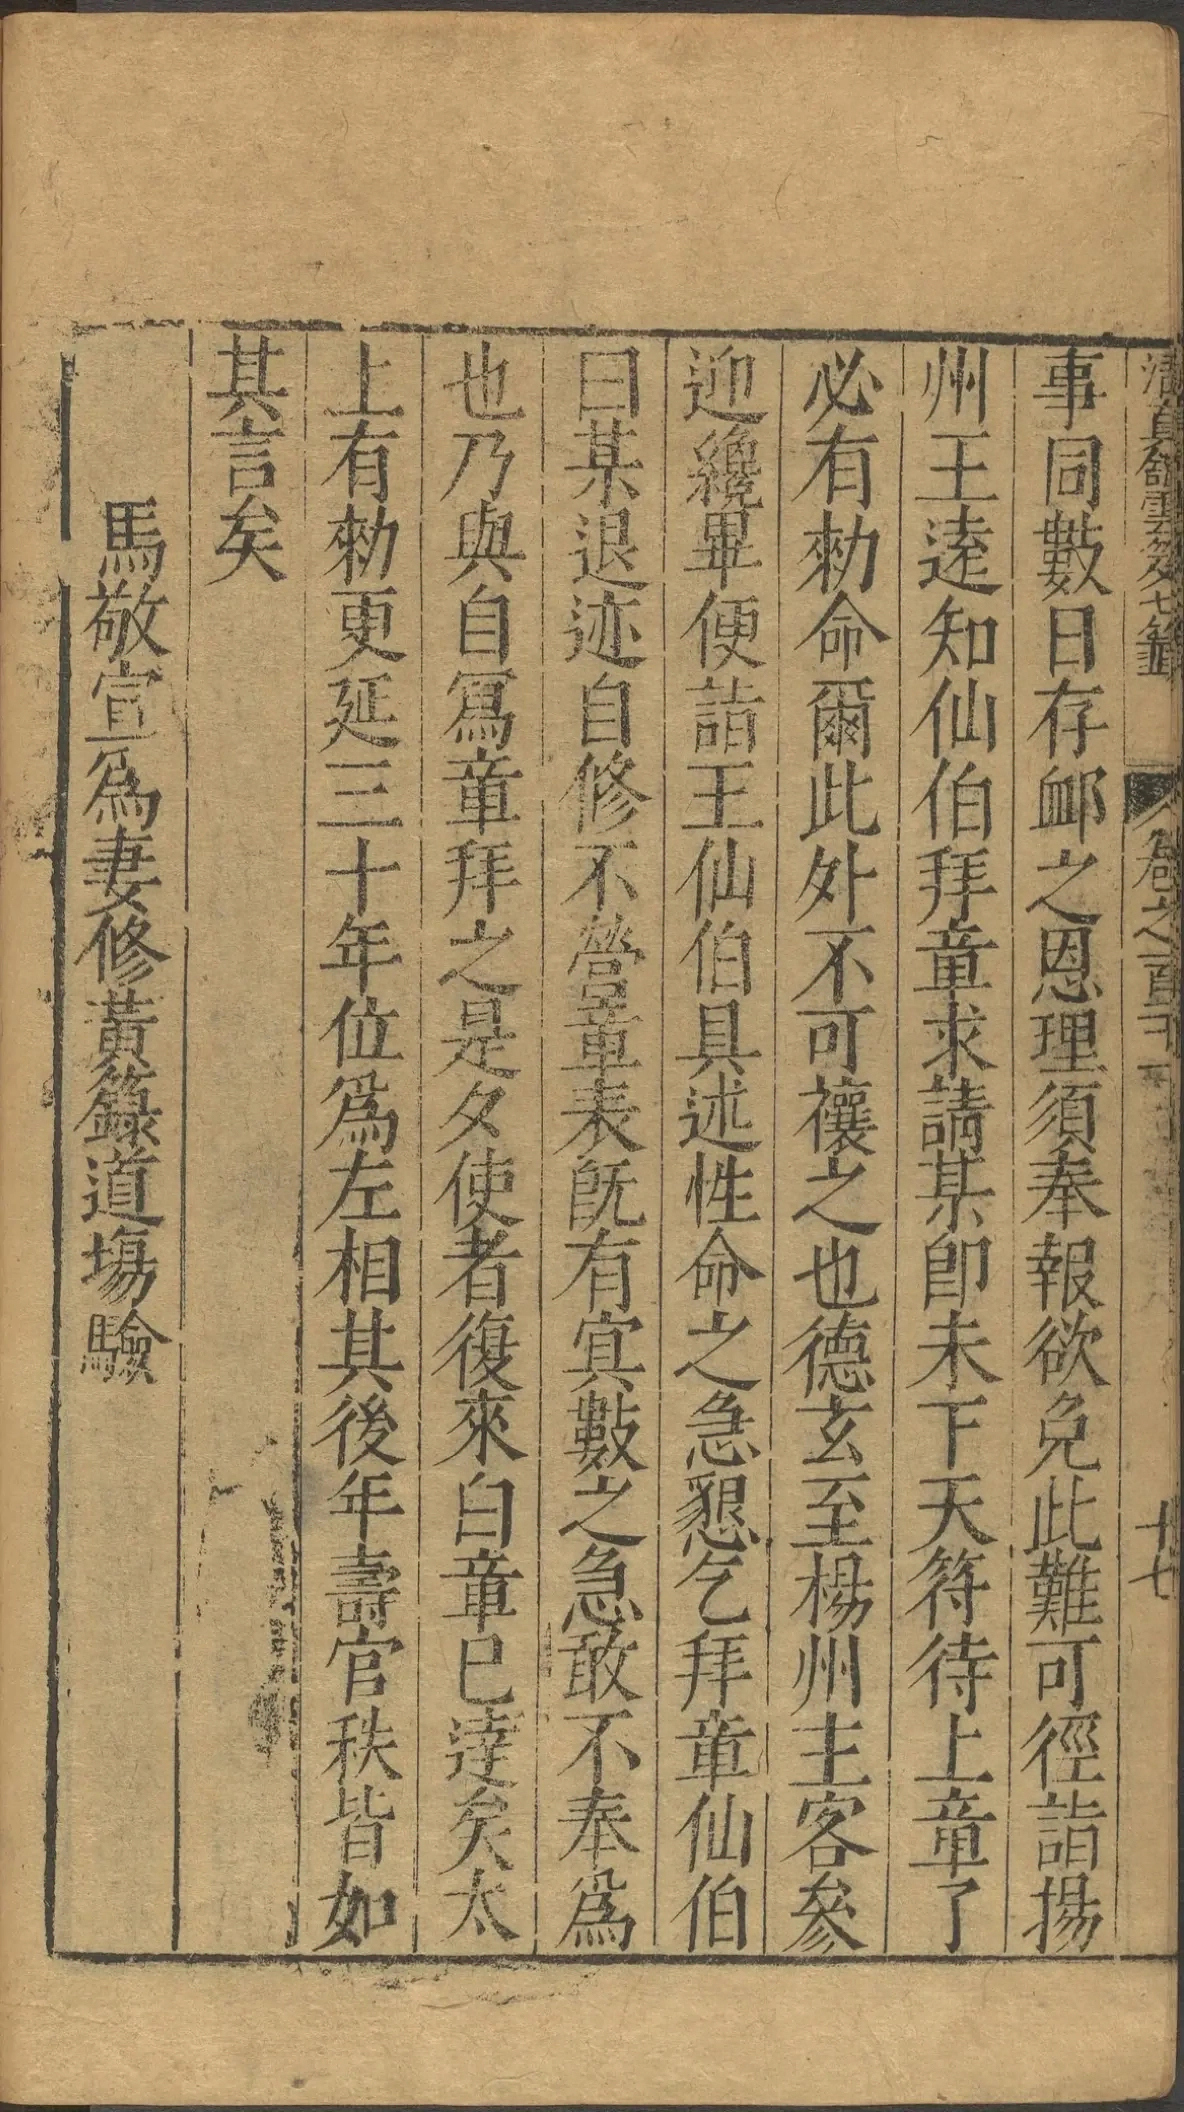 清真館雲笈七籤 卷之百 十七
事同數日存䘏之恩理須奉報欲免此難可徑詣揚
州王逺知仙伯拜章求請某卽未下天符待上章了
必有勑命爾此外不可禳之也德玄至楊州主客參
迎纔畢便詣王仙伯具述性命之急懇乞拜章仙伯
曰某退迹自修不營章表旣有㝠數之急敢不奉爲
也乃與自寫章拜之是夕使者復來白章已逹矣太
上有勑更延三十年位爲左相其後年壽官秩皆如
其言矣
馬敬宣爲妻修黃籙道場驗